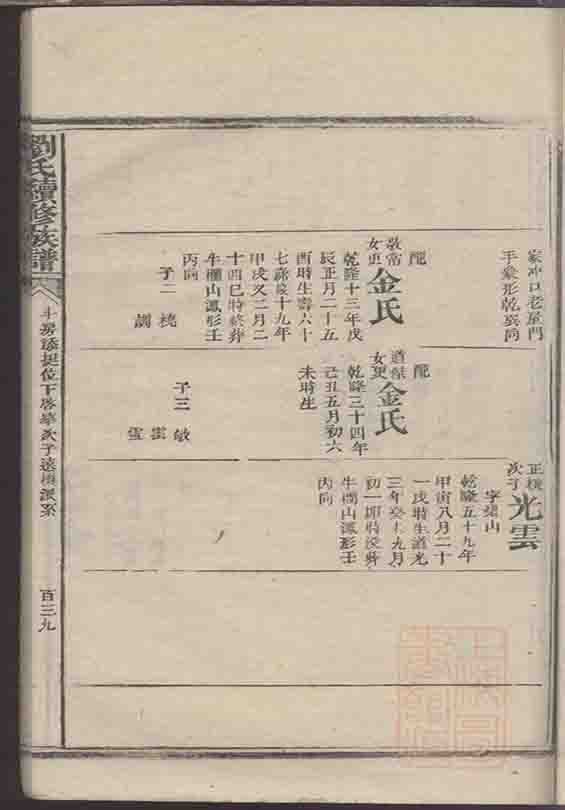 家冲口老屋門
手象形乾巽向
配
敬當
女更
金氏
乾隆十三年戊
辰正月二十五
酉時生壽六十
七嘉慶十九年
甲戌又二月二
十四巳時終葬
牛欄山鳳形壬
丙向
子二
桃
訓
配
女更
金氏
乾隆三十四年
己丑五月初六
未時生
子三
敏
雲
正桃
次子
光雲
字 山
乾隆五十九年
甲寅八月二十
一戌時生道光
三年癸未九月
初一卯時没葬
牛欄山鳳形壬
丙向
劉氏續修族譜
位下啓華次子遠 派系
百三九